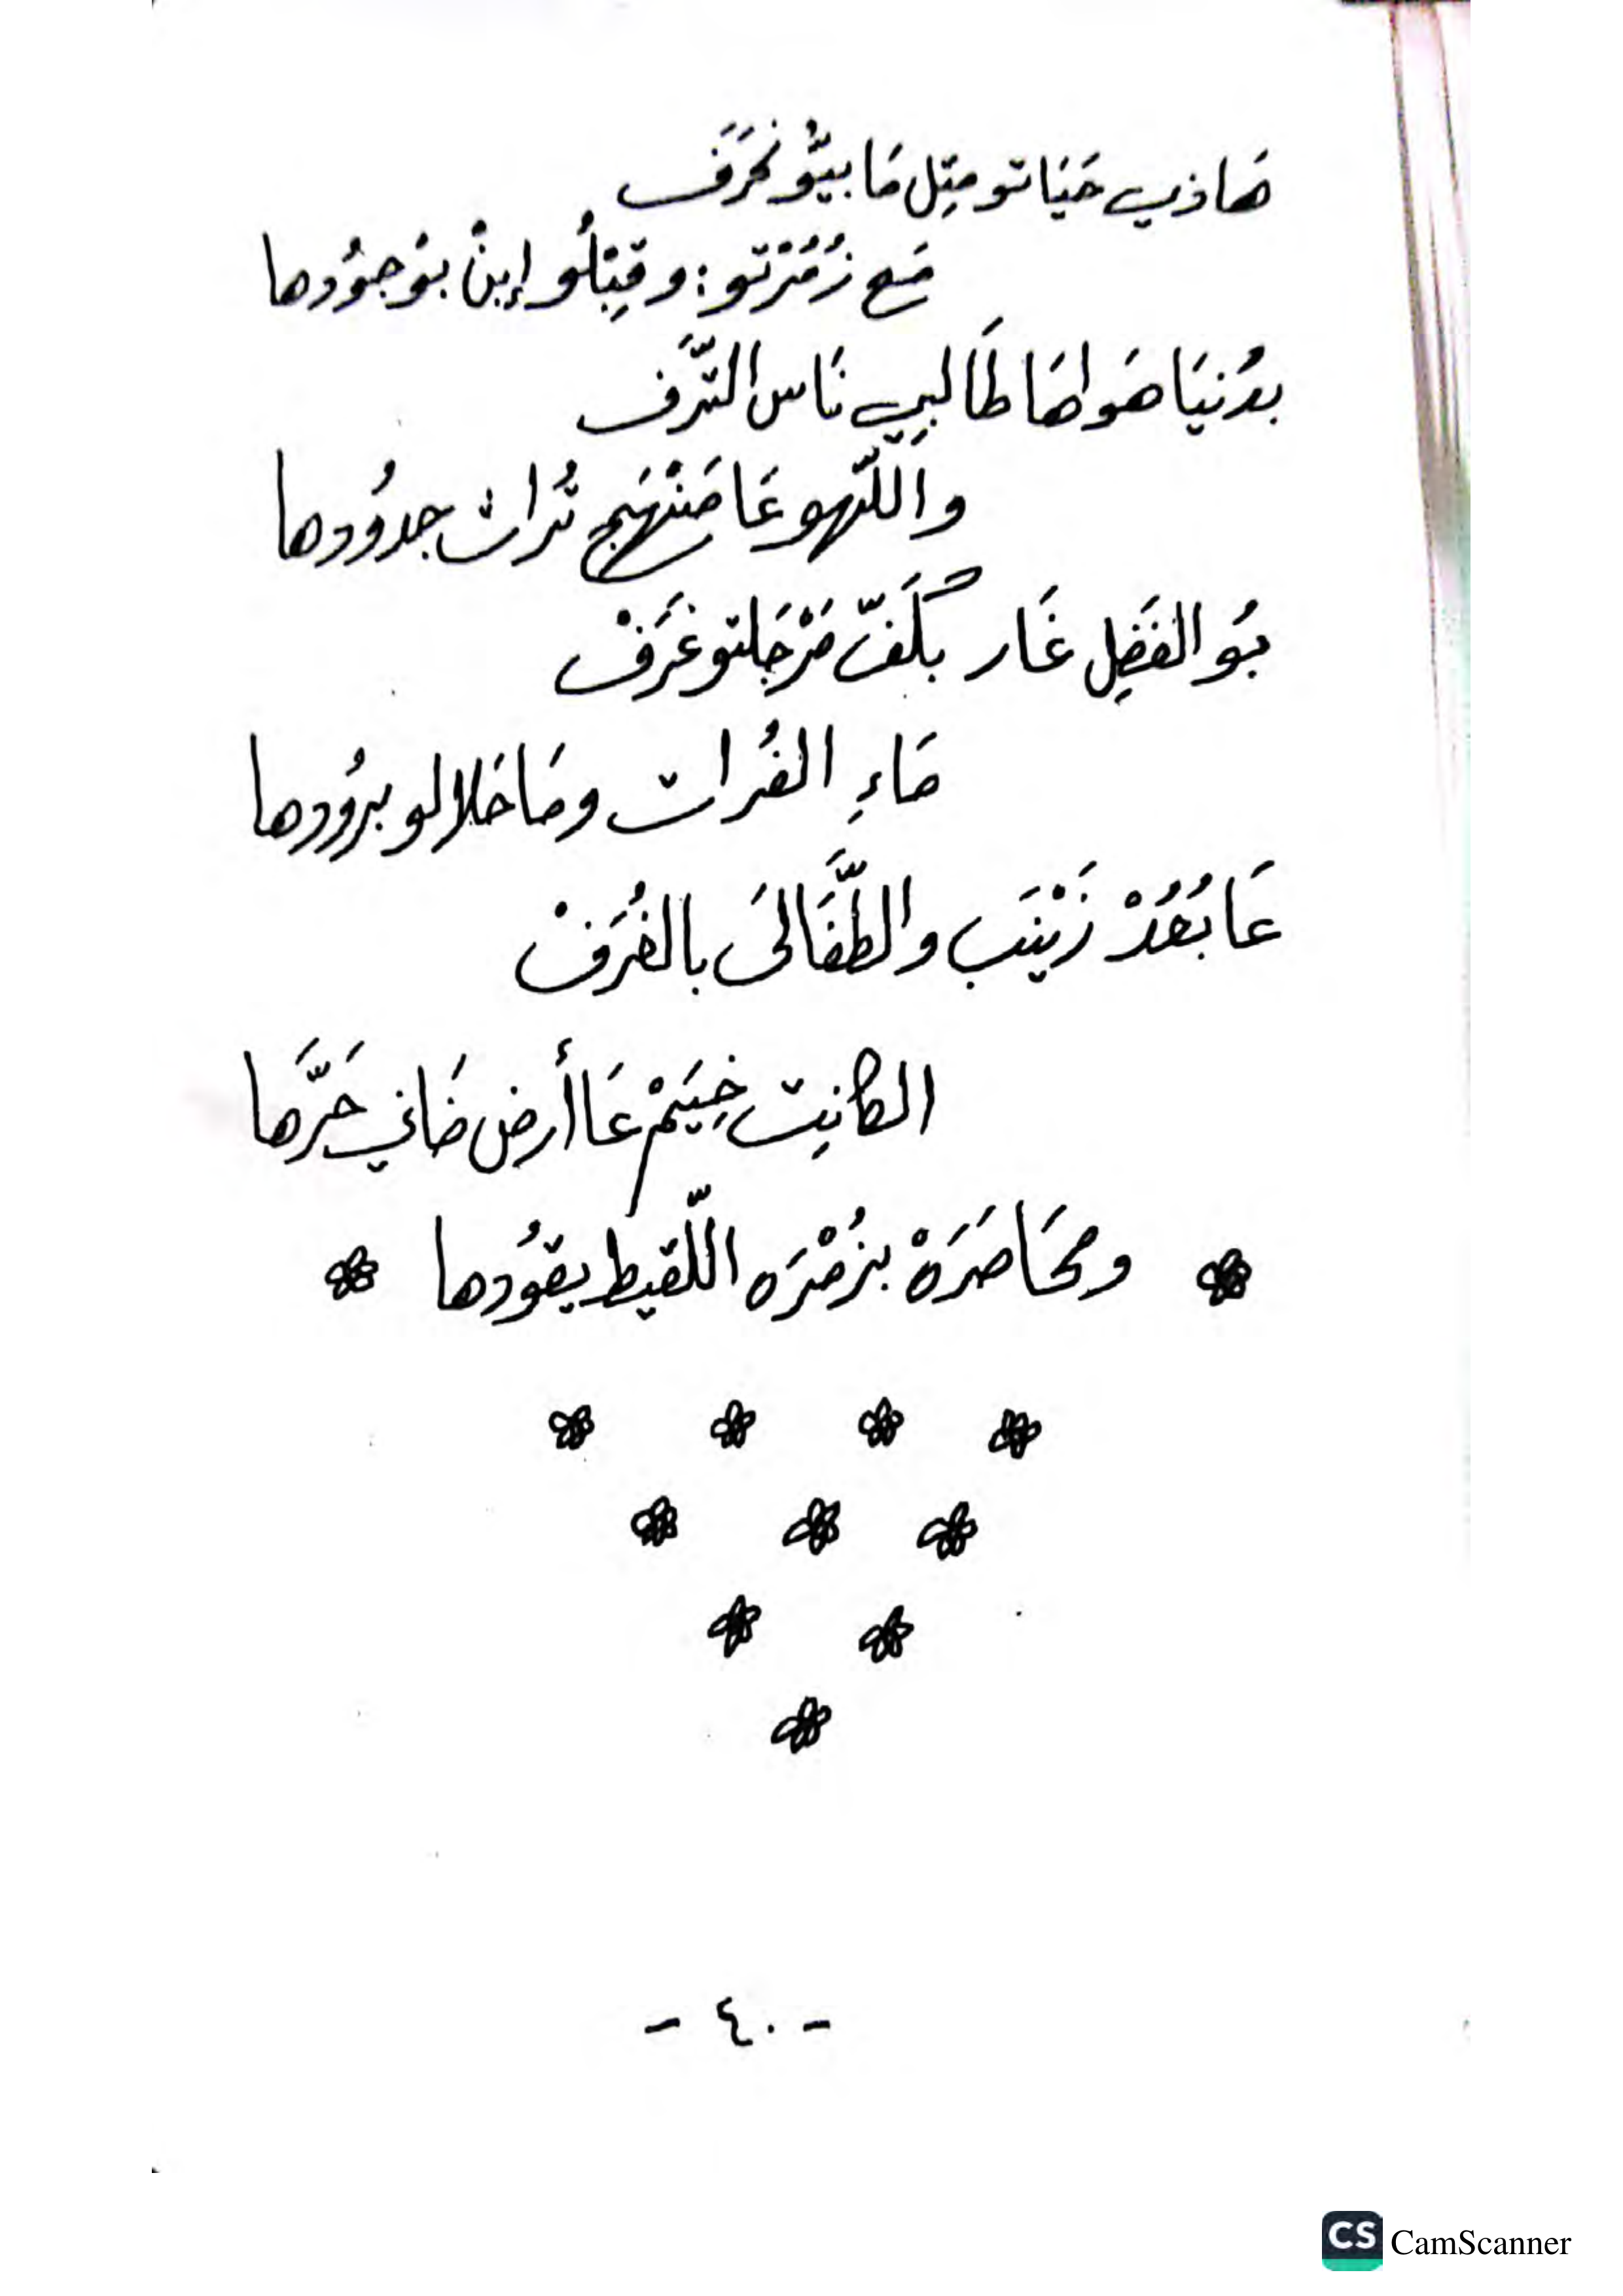 هَاذي حَيَاتو مِتِل مَا بيُّو نحَرَف
مَع زُمُرْتو : وقِبْلُو إبنْ بوُجوُدها
بدُنيَا هَواهَا طَالبِي نَاس التَّرَف
واللَّهو عَا مَنْهَج تُراث جدوُدها
بوُ الفَضِل غَار بكَفّ مَرْجَلتو غَرَفْ
مَاءِ الفُرات ومَا حَلالو بروُدها
عَا بُعُدْ زَيْنَب والطَّفَالىَ بالغُرَفْ
الكانِت خِيَمْ عَا أرض ضَاني حَرَّها
ومحَاصَرَهْ بزُمْرَه اللّقيط يقوُدها
- ٤٠ -
CS CamScanner